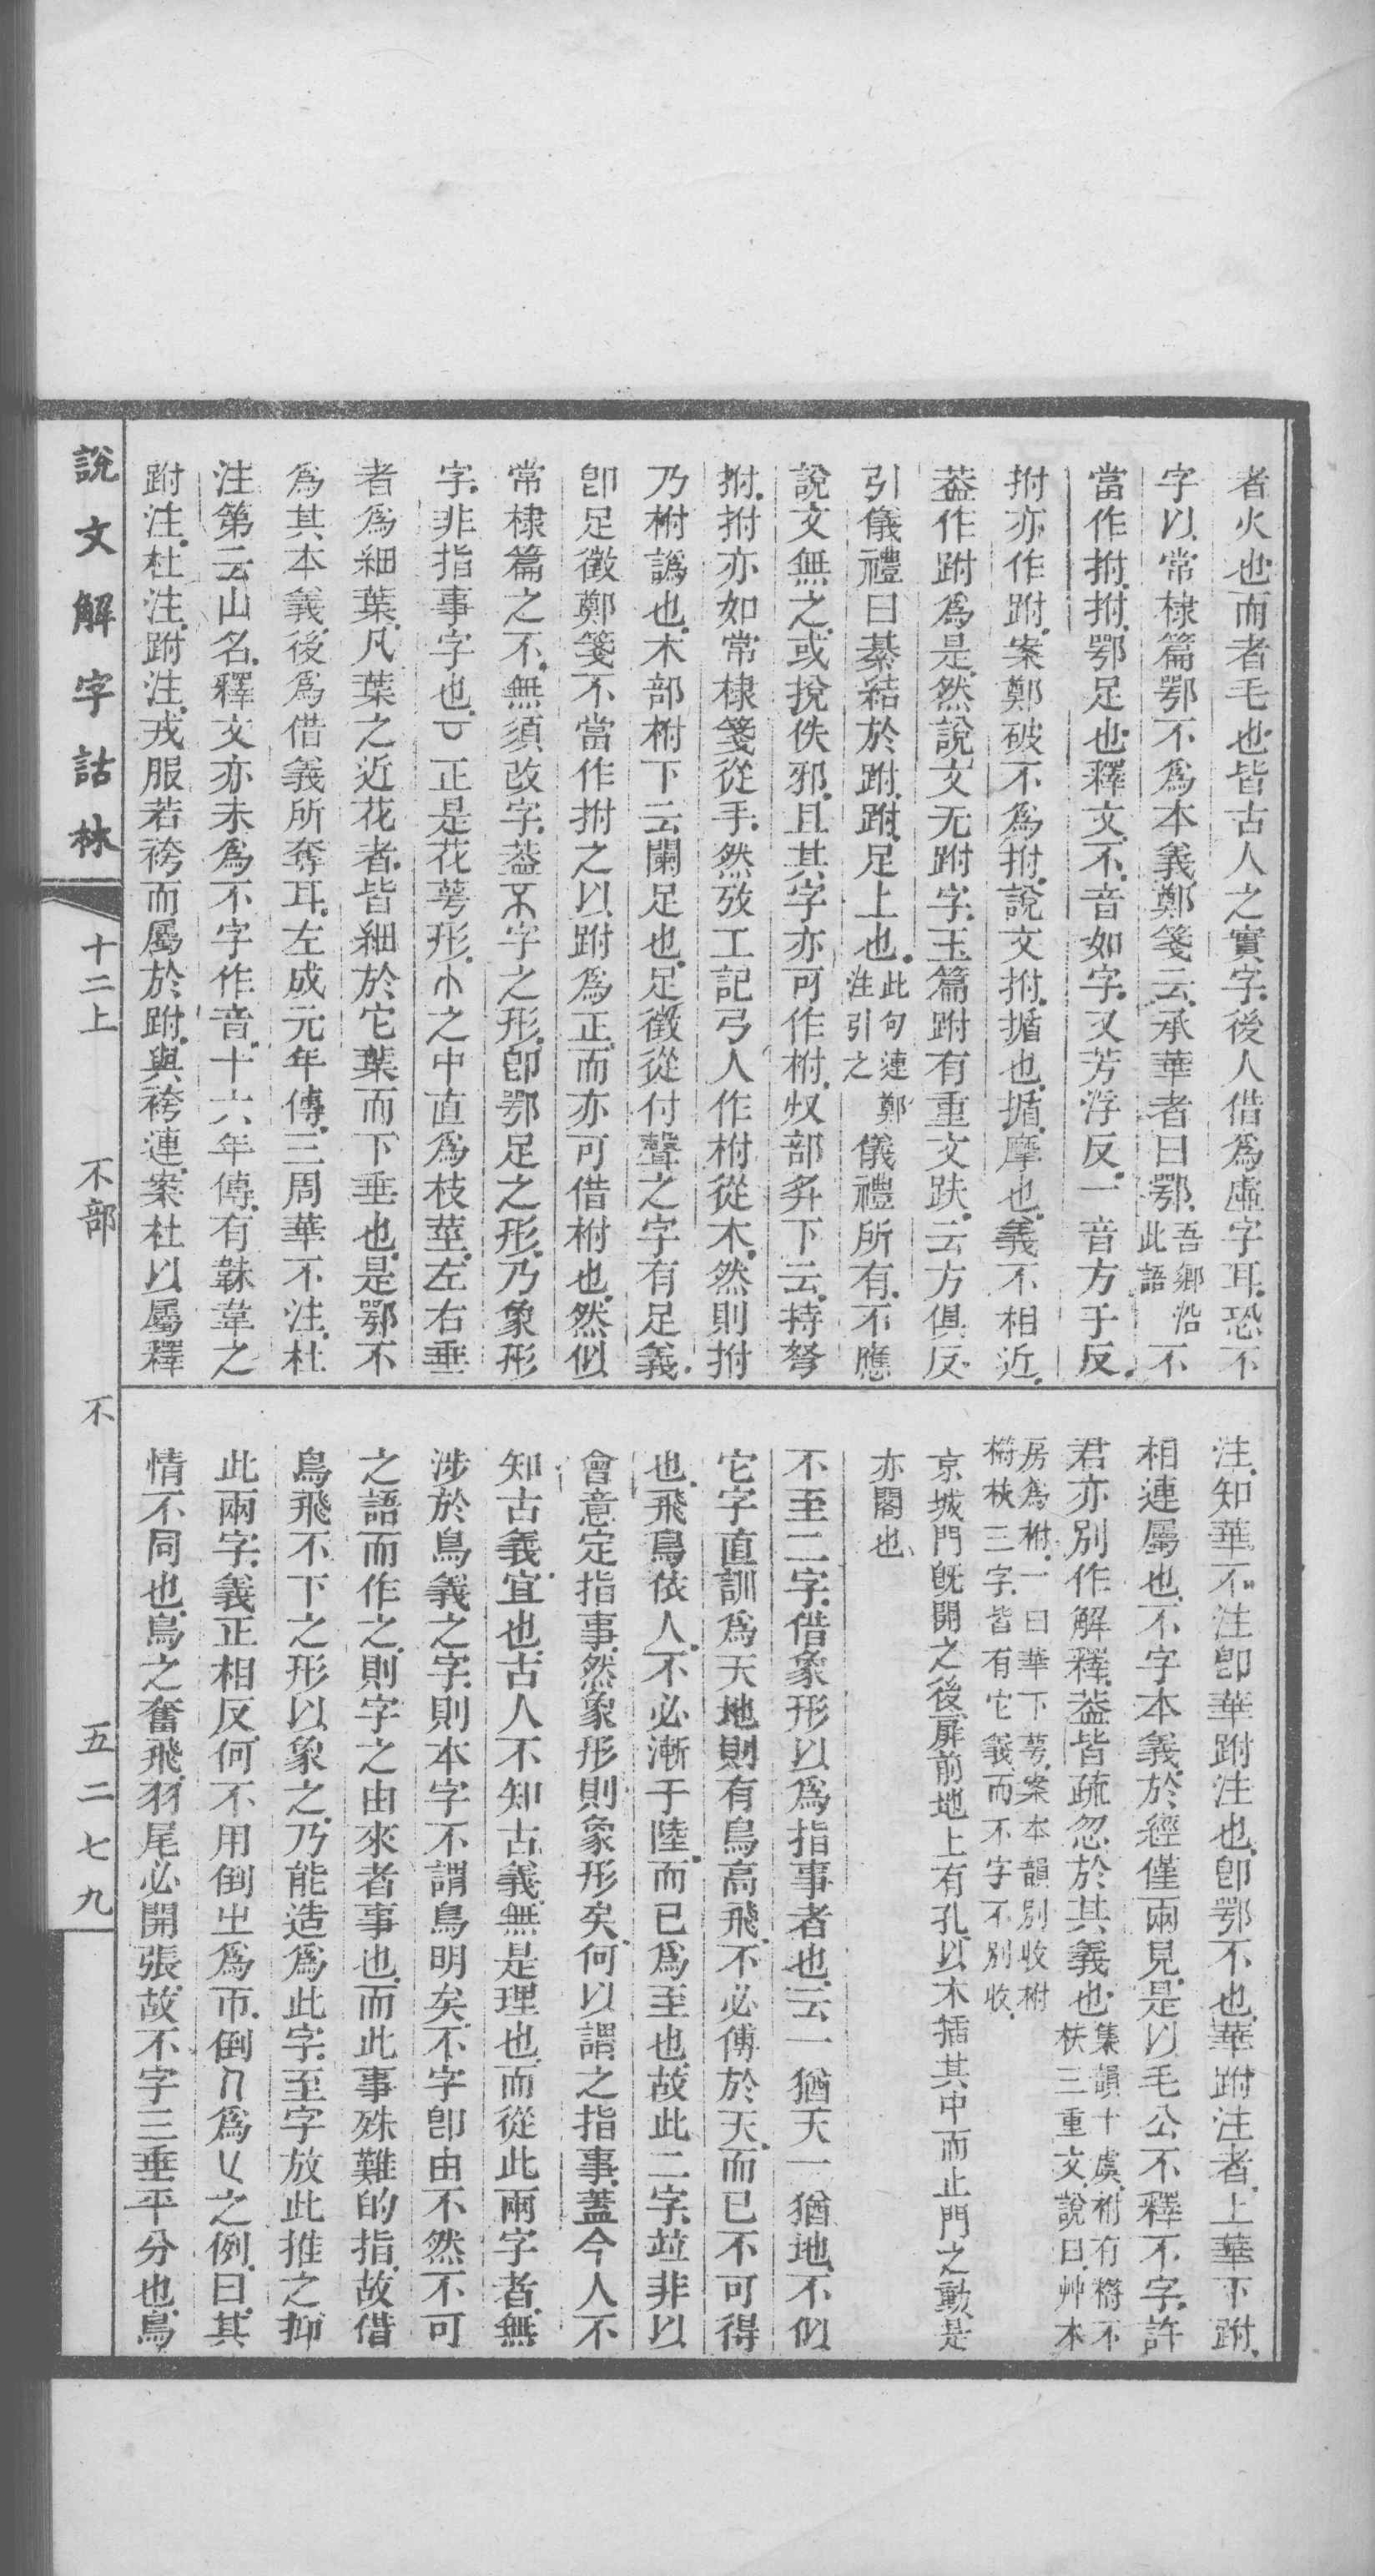 者火也而者毛也皆古人之實字後人借爲虛字耳恐不
字以常棣篇鄂不爲本義鄭箋云承華者曰鄂吾鄉沿此語不
當作拊拊鄂足也釋文不音如字又芳浮反一音方于反
拊亦作跗案鄭破不爲拊說文拊揗也揗摩也義不相近
葢作跗爲是然說文无跗字玉篇跗有重文趺云方俱反
引儀禮曰綦結於跗跗足上也此句連鄭注引之儀禮所有不應
說文無之或挩佚邪且其字亦可作柎収部弅下云持弩
拊拊亦如常棣箋從手然攷工記弓人作柎從木然則拊
乃柎譌也木部柎下云闌足也足徵從付聲之字有足義
卽足徵鄭箋不當作拊之以跗爲正而亦可借柎也然似
常棣篇之不無須改字葢不字之形卽鄂足之形乃象形
字非指事字也正是花萼形之中直爲枝莖左右垂
者爲細葉凡葉之近花者皆細於它葉而下垂也是鄂不
爲其本義後爲借義所奪耳左成元年傳三周華不注杜
注第云山名釋文亦未爲不字作音十六年傳有韎韋之
跗注杜注跗注戎服若袴而屬於跗與袴連案杜以屬釋
注知華不注卽華跗注也卽鄂不也華跗注者上華下跗
相連屬也不字本義於經僅兩見是以毛公不釋不字許
君亦別作解釋葢皆疏忽於其義也集韻十虞柎有䠵不枎三重文說曰艸木
房爲柎一曰華下萼案本韻別收柎䠵枎三字皆有它義而不字不別收
京城門旣開之後扉前地上有孔以木㨮其中而止門之動是
亦閣也
不至二字借象形以爲指事者也云一猶天一猶地不似
它字直訓爲天地則有鳥高飛不必傅於天而已不可得
也飛鳥依人不必漸于陸而已爲至也故此二字竝非以
會意定指事然象形則象形矣何以謂之指事蓋今人不
知古義宜也古人不知古義無是理也而從此兩字者無
涉於鳥義之字則本字不謂鳥明矣不字卽由不然不可
之語而作之則字之由來者事也而此事殊難的指故借
鳥飛不下之形以象之乃能造爲此字至字放此推之抑
此兩字義正相反何不用倒㞢爲帀倒爲之例曰其
情不同也鳥之奮飛羽尾必開張故不字三垂平分也鳥
說文解字詁林
十二上
不部
不
五二七九